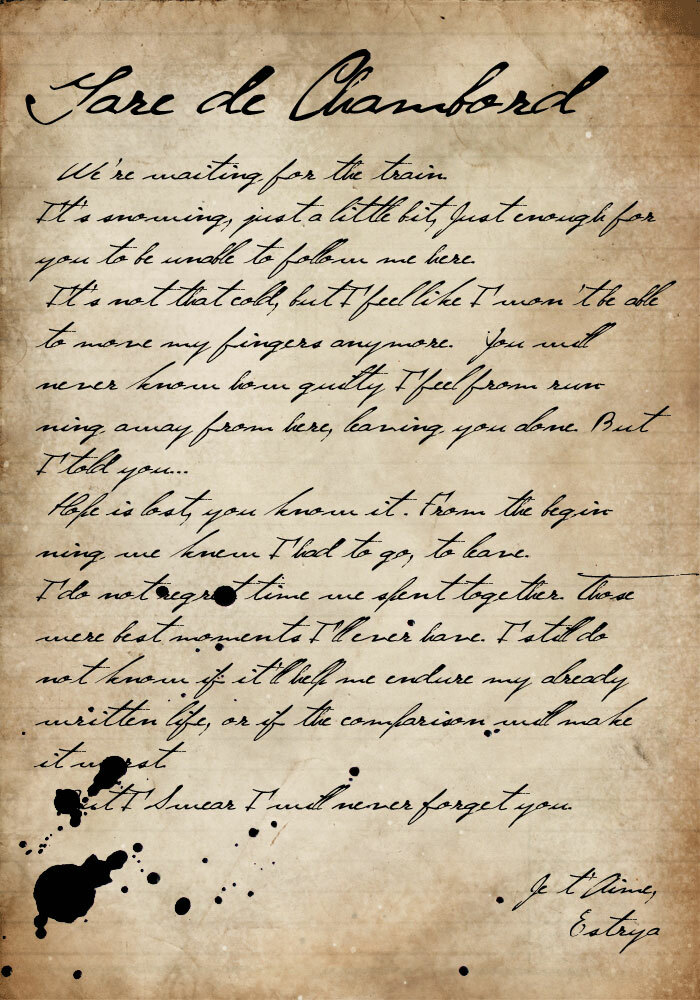 Gare de Chambord
We're waiting for the train.
It's snowing, just a little bit, Just enough for
you to be unable to follow me here.
It's not that cold, but I feel like I won't be able
to move my fingers anymore. You will
never know how guilty I feel from run
ning away from here, leaving you alone. But
I told you...
Hope is lost, you know it. From the begin
ning we knew I had to go, to leave.
I do not regret time we spent together. Those
were best moments I'll ever have. I still do
not know if it'll help me endure my already
written life, or if the comparison will make
it worst.
But I Swear I will never forget you.
Je t'Aime,
Estrya